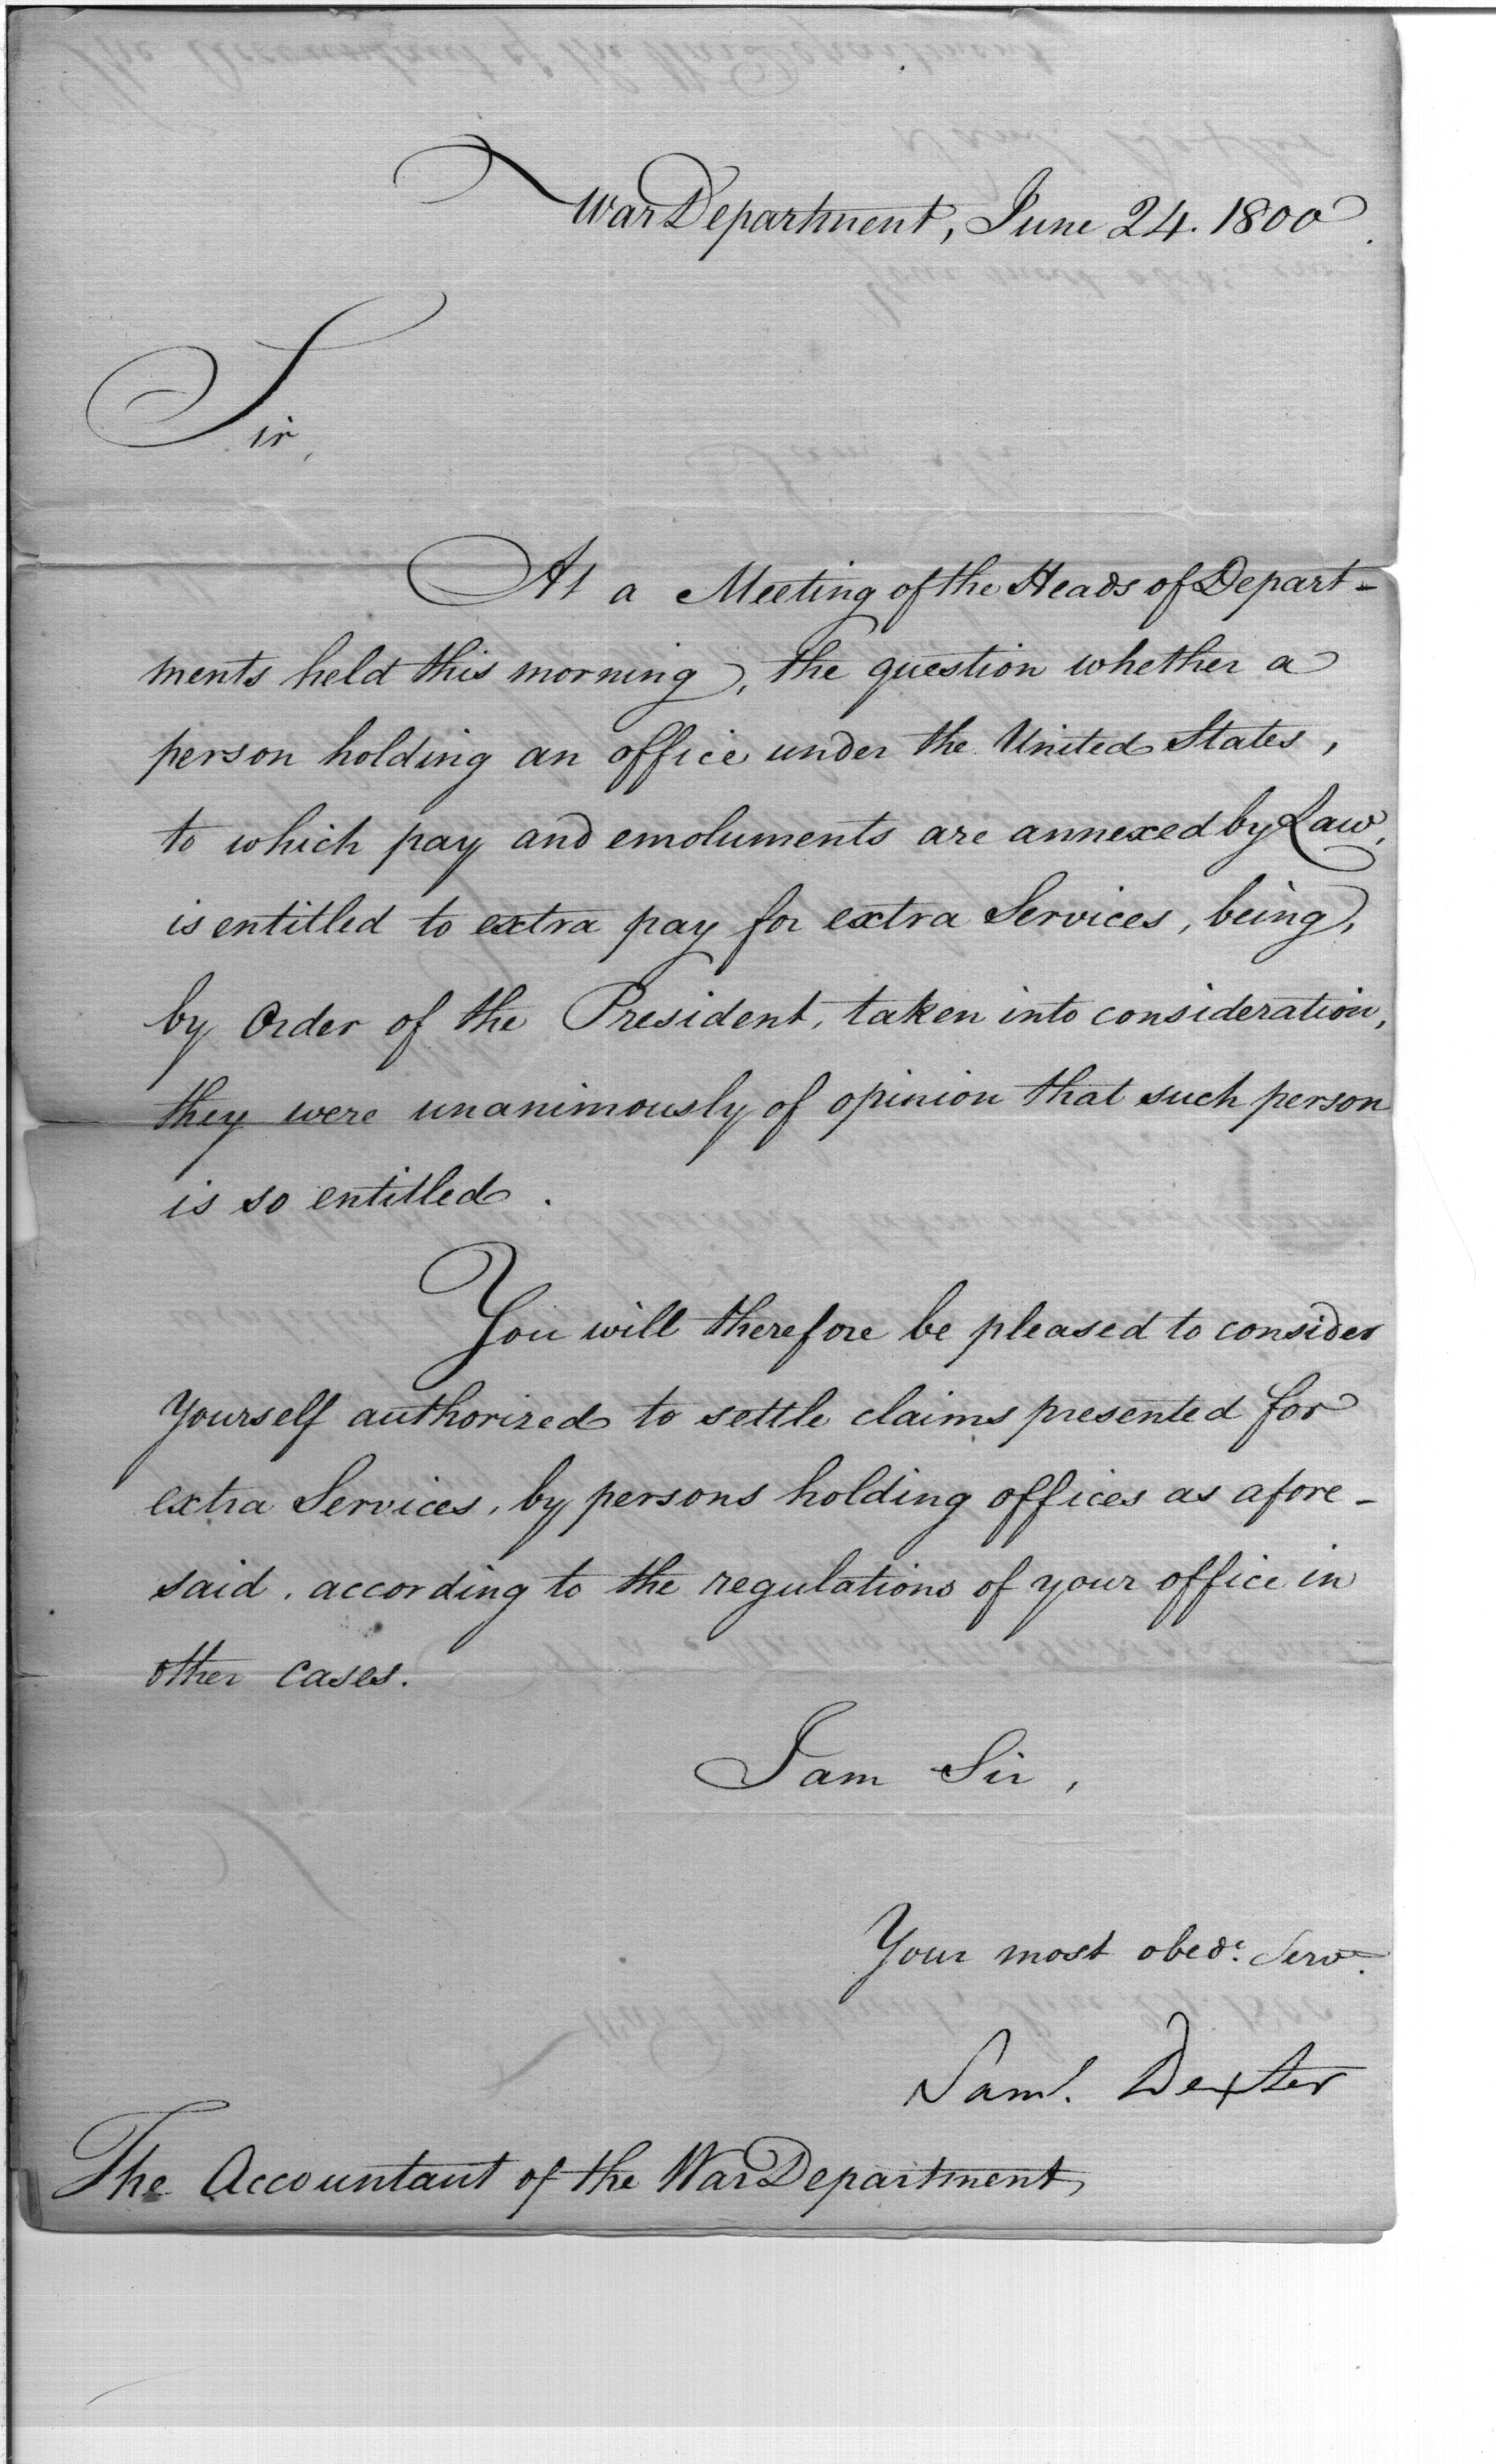 War Department, June 24. 1800.
Sir,
At a Meeting of the Heads of Depart-
ments held this morning, the question whether a
person holding an office under the United States,
to which pay and emoluments are annexed by Law,
is entitled to extra pay for extra Services, being,
by Order of the President, taken into consideration,
they were unanimously of opinion that such person
is so entitled.
You will therefore be pleased to consider
yourself authorized to settle claims presented for
extra Services, by persons holding offices as afore-
said, according to the regulations of your office in
other cases.
I am Sir,
Your most obedt. Servt.
Saml. Dexter
The Accountant of the War Department,